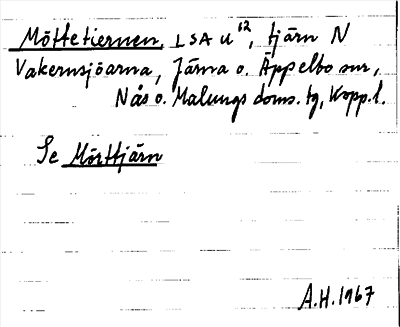 Möttetiernen, LSA U 62, tjärn N
Vakernsjöarna, Järna o. Äppelbo snr,
Nås o. Malungs doms. tg, Kopp. l.
Se Mörttjärn
A.H. 1967